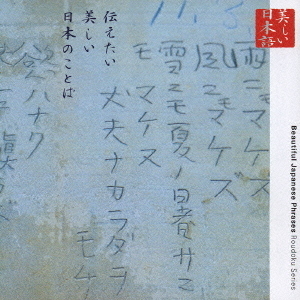 美しい
日本語
伝えたい
美しい
日本のことば
Beautiful Japanese Phrases Roudoku Series
雨ニモマケズ
風ニモマケズ
雪ニモ夏ノ暑サニモ
マケヌ
丈夫ナカラダヲ
モチ
慾ハナク